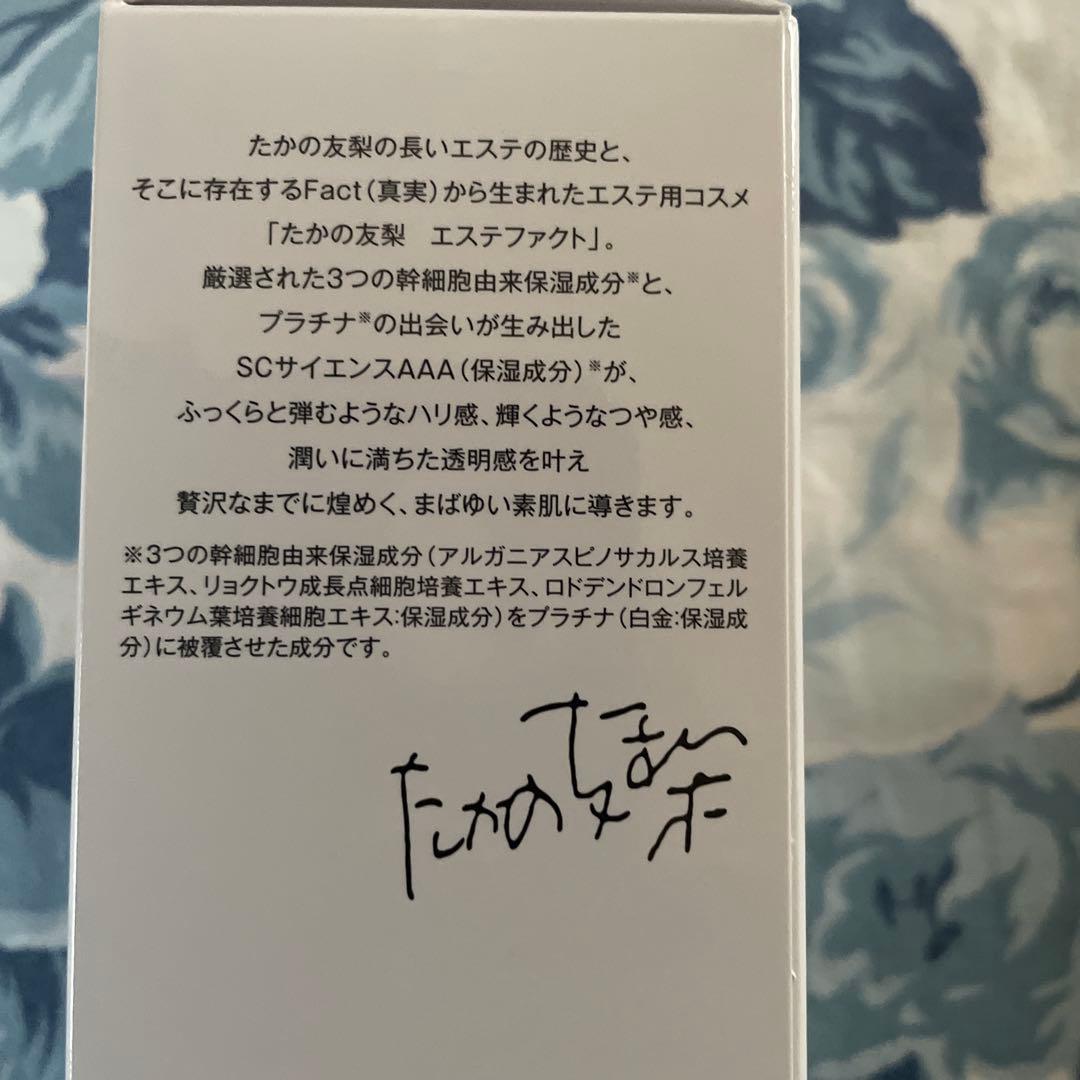 たかの友梨の長いエステの歴史と、
そこに存在するFact（真実）から生まれたエステ用コスメ
「たかの友梨　エステファクト」。
厳選された3つの幹細胞由来保湿成分※と、
プラチナ※の出会いが生み出した
SCサイエンスAAA（保湿成分）※が、
ふっくらと弾むようなハリ感、輝くようなつや感、
潤いに満ちた透明感を叶え
贅沢なまでに煌めく、まばゆい素肌に導きます。
※3つの幹細胞由来保湿成分（アルガニアスピノサカルス培養
エキス、リョクトウ成長点細胞培養エキス、ロドデンドロンフェル
ギネウム葉培養細胞エキス:保湿成分）をプラチナ（白金:保湿成
分）に被覆させた成分です。
たかの友梨